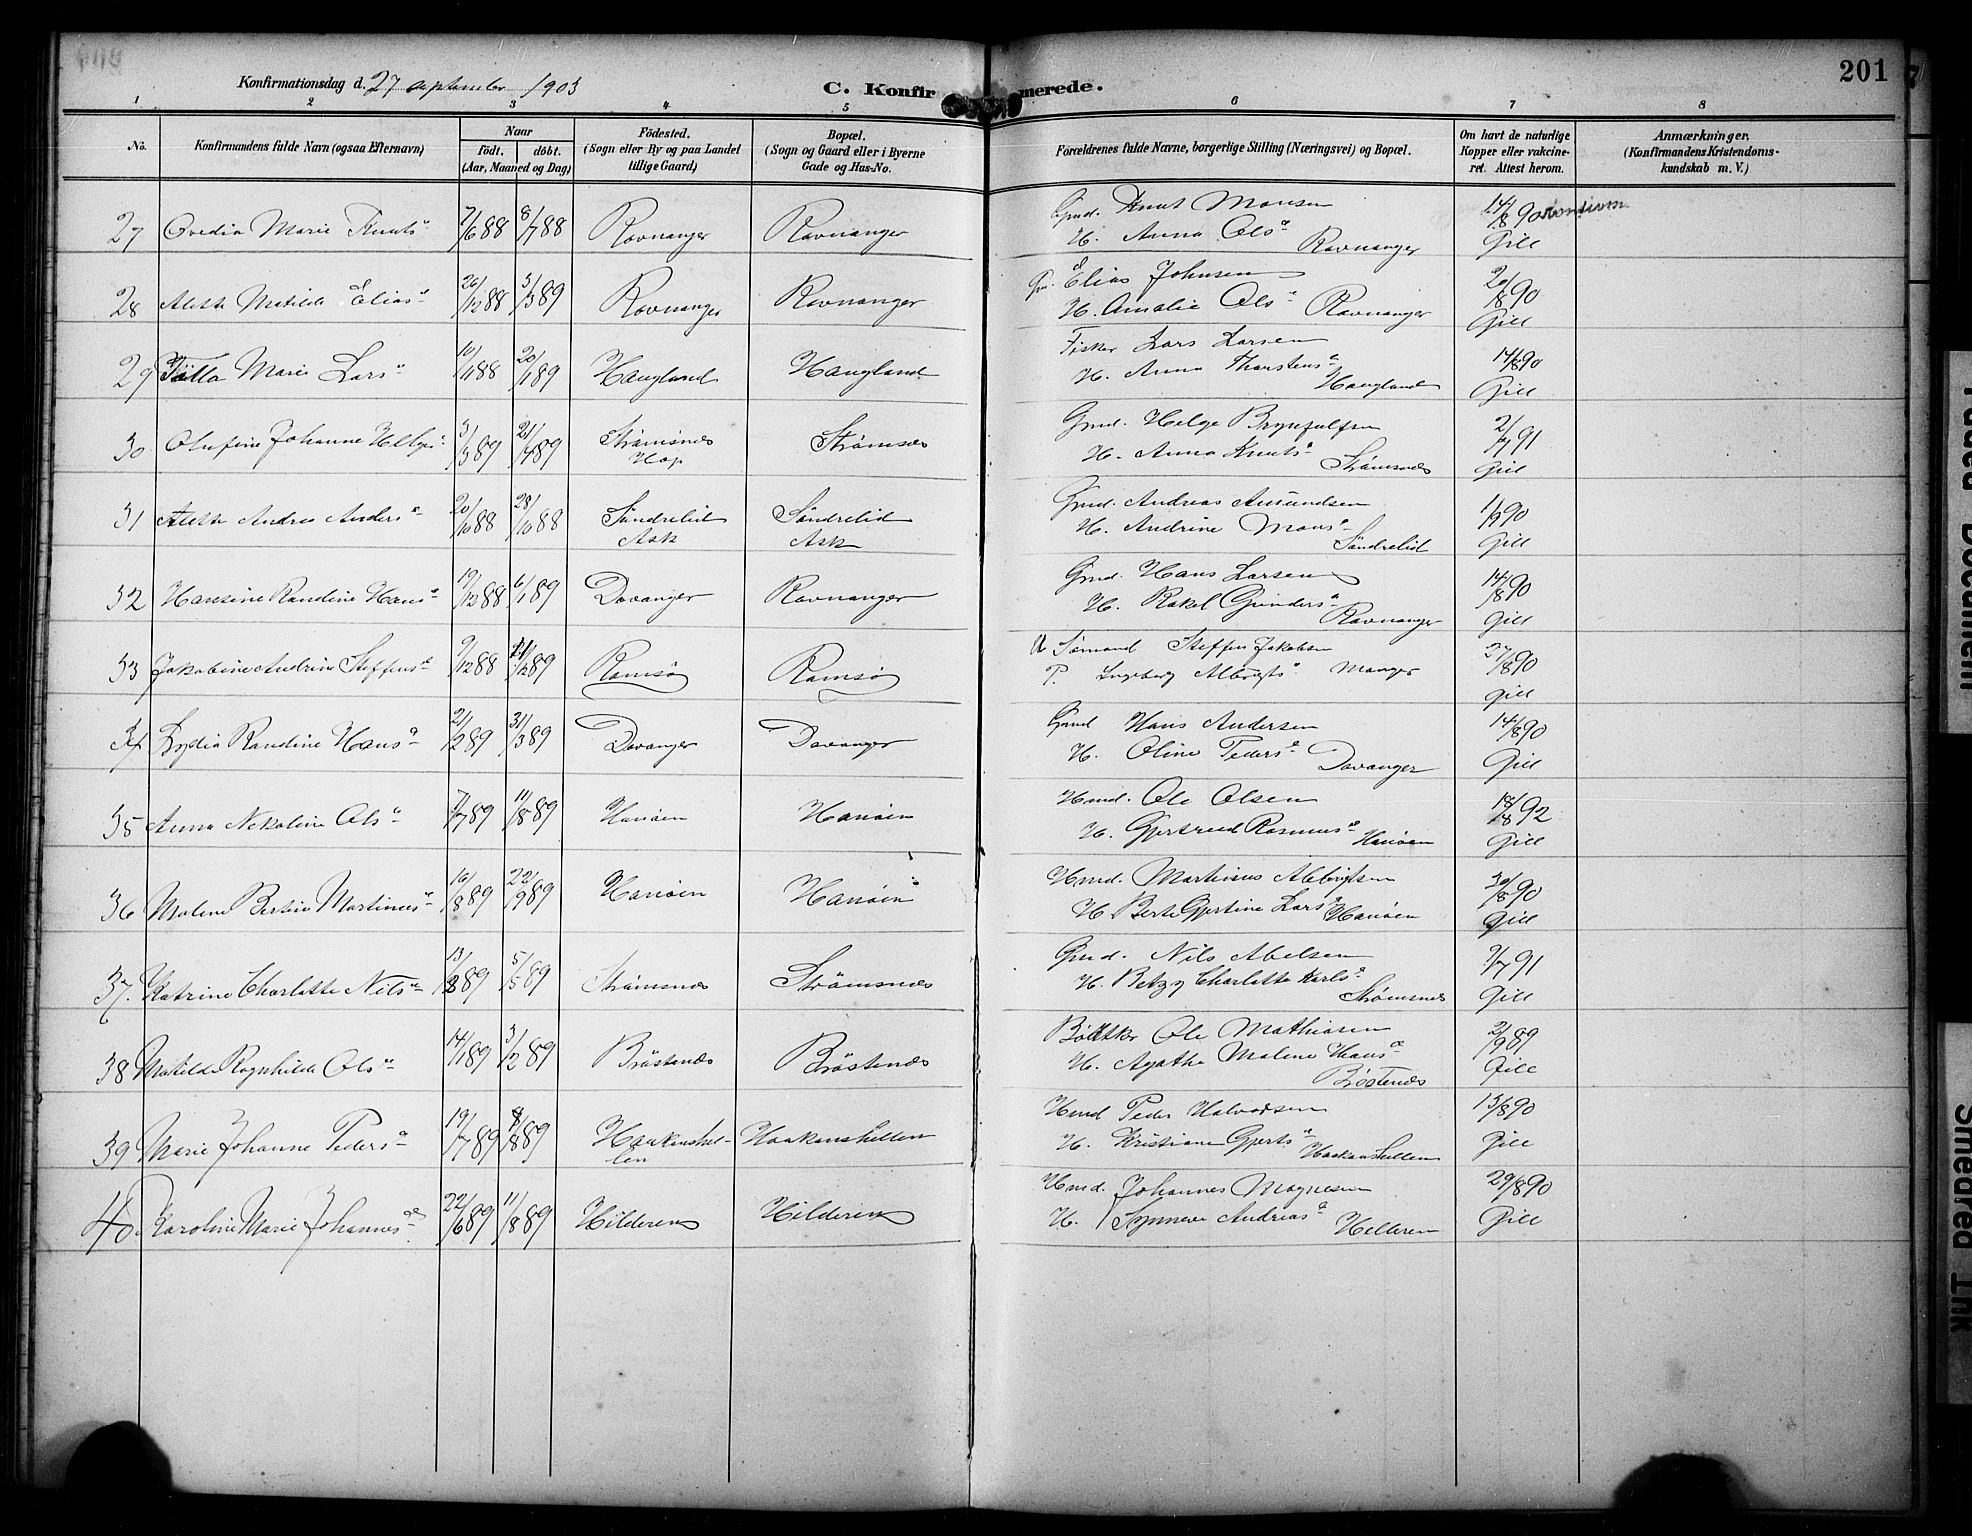 201
Konfirmationsdag d. 27 september 1903
C. Konfirmerede.
1 2 3 4 5 6 7 8
No. Konfirmandens fulde Navn (ogsaa Efternavn) Naar födt. döbt. (Aar, Maaned og Dag) Födested. (Sogn eller By og paa Landet tillige Gaard) Bopæl. (Sogn og Gaard eller i Byerne Gade og Hus-No. Forældrenes fulde Navne, borgerlige Stilling (Næringsvei) og Bopæl. Om havt de naturlige Kopper eller vakcineret. Attest herom. Anmærkninger. (Konfirmandens Kristendomskundskab m. V.)
27 Ovedia Marie Knuts 7/6 88 8/7 88 Ravnanger Ravnanger Gmd. Knut Monsen 14/8 90
H. Anna Ols Ravnanger Gill
28 Aleth Matilde Elias 26/12 88 3/3 89 Ravnanger Ravnanger Gm. Elias Johnsen 20/8 90
H. Amalie Ols Ravnanger Gill
29 Marie Lars 10/11 88 20/1 89 Haugland Haugland Fisker Lars Larsen 14/8 90
H. Anna Thorstens Haugland Gill
30 Olufine Johanne Helges 3/3 89 21/4 89 Strømsnes Hop Strømsnes Gmd. Helge Brynjulfsen 2/7 91
H. Anna Knuts Strømsnes Gill
31 Aleth Andrea Anders 20/10 88 28/10 88 Söndrelid Ask Söndrelid Ask Gmd. Andreas Amundsen 1/9 90
H. Andrine Mons Söndrelid Gill
32 Hansine Randine Hans 19/12 88 6/1 89 Davanger Ravnanger Gmd. Hans Larsen 14/8 90
H. Rakel Gunders Ravnanger Gill
33 Jakobine Andrine Steffens 9/12 88 89 Ramsö Ramsö U Sømand Steffen Jakobsen 27/8 90
P. Ingeborg Albrigts Manger Gill
34 Lydia Randine Hans 21/2 89 31/3 89 Davanger Davanger Gmd Hans Andersen 14/8 90
H. Oline Peders Davanger Gill
35 Anna Nikoline Ols 7/7 89 11/8 89 Hanöen Hanöen Hmd. Ole Olsen 18/8 92
H. Gjertrud Rasmus Hanöen Gill
36 Malene Bertine Martinus 16/8 89 22/9 89 Hanöen Hanöen Hmd. Martinus Albrigtsen 30/8 90
H. Berte Gjertine Lars Hanöen Gill
37. Katrine Charlotte Nils 13/3 89 5/5 89 Strömsnes Strömsnes Gmd. Nils Abelsen 2/7 91
H. Betzy Charlotte Karls Strømsnes Gill
38 Matilde Ragnhilda Ols 14/1 89 3/2 89 Bröstenes Bröstenes Bödtker Ole Mathiasen 2/9 89
H. Agathe Malene Hans Bröstenes Gill
39 Marie Johanne Peders 19/7 89 8/8 89 Haakonshellen Haakonshellen Hmd Peder Halvorsen 13/8 90
H. Kristiane Gjerts Haakonshellen Gill
40. Karoline Marie Johannes 22/6 89 11/8 89 Hilderen Hilderen Hmd. Johannes Magnesen 29/8 90
H. Synneve Andreas Hilleren Gill
Faded Document
Smeared Ink